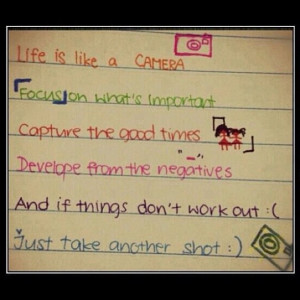 Life is like a CAMERA
Focus on what's important
Capture the good times
"-"
Develope from the negatives
And if things don't work out :(
Just take another shot :)